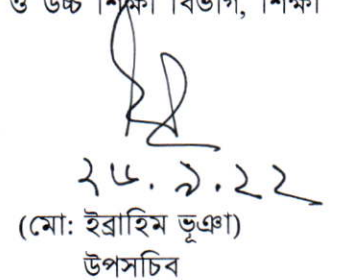 ও উচ্চ শিক্ষা বিভাগ, শিক্ষা
২৬.৯.২২
(মো: ইব্রাহিম ভূঞা)
উপসচিব